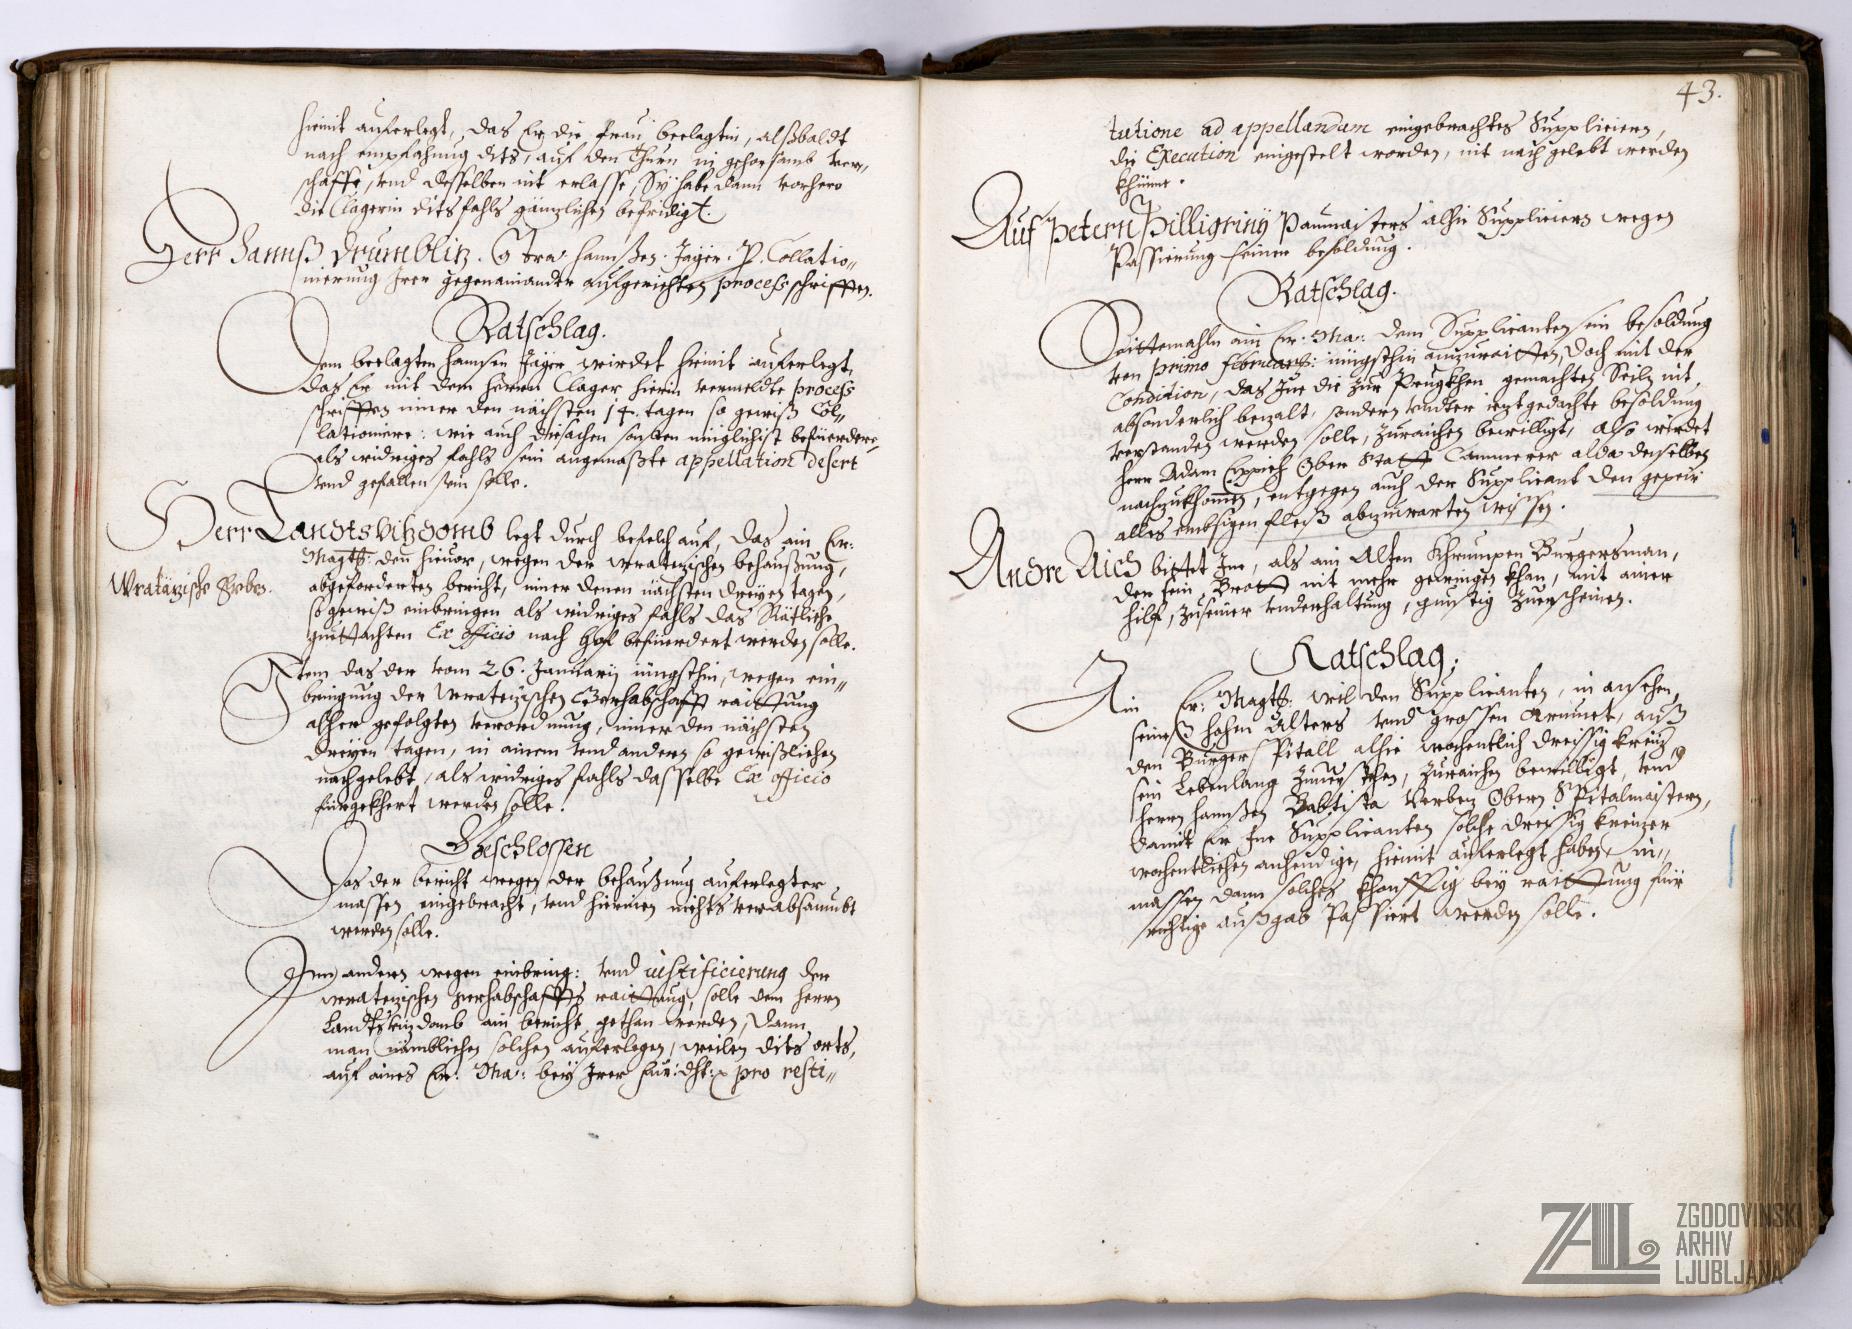 hiemit auferlegt, das Er die Frau beclagtin, alßbaldt
nach empfahung dits, auf den Thurn in gehorsamb ver„
schaffe, vnd desselben nit erlasse, Sy habe dann vorhero
die Clagerin ditsfahls gänzlichen befridigt.
Herr Hannß Drumblitz. Contra Hannßen Jäger. P. Collatio„
nierung Irer gegenainander aufgerichten process schrifften.
Ratschlag.
Dem beclagten Hansen Jäger wirdet hiemit auferlegt,
das Er mit dem herrn Clager hierin vermeldte process
schrifften inner den nächsten 14. tagen so gewiß Col„
lationiere: wie auch die sachen sonsten müglichist befuerdere
als widriges fahls sein angemaßte appellation desert
vnd gefallen sein solle.
Herr Landtsvitzdomb legt durch befelch auf, das ain Er:
Magtt: den hieuor, wegen der Wratenischen behaußung,
Wratänische Erben.
abgeforderten bericht, inner denen nächsten dreyen tagen,
so gewiß einbringen als widriges fahls das Rätliche
guettachten Ex officio nach hof befuerdert werden solle.
Item das der vom 26. January jüngsthin, wegen ein„
bringung der Wratenischen Gerhabschafft raittung
alher gefolgten verordnung, inner den nächsten
dreyen tagen, in ainem vnd andern so gewißlichen
nachgelebt, als widriges fahls dasselbe Ex officio
fürgekhert werden solle.
Beschlossen
Das der bericht wegen der behaußung auferlegter
massen eingebracht, vnd hierinen nichts verabsaumbt
werden solle.
Im andern wegen einbring: vnd iustificierung der
Wratenischen gerhabschaffts raittung, solle dem herrn
Landtsvizdomb ain bericht gethan werden, dann
man nämblichen solchen auferlegen, weilen dits orts,
auf aines Er: Ma: bey Irer Für: dht: pro resti„
43.
tutione ad appellandum eingebrachtes Supplicieren,
die Execution eingestelt worden, nit nachgelebt werden
khünne.
Auf Petern Pilligriny Paumaisters alhie Supplicieren wegen
Passierung seiner besoldung.
Ratschlag.
Seittemahln ain Er: Ma: dem Supplicanten sein besoldung
von primo February: jüngsthin anzuraitten, doch mit der
Condition, das Ime die zur Prugkhen gemachten Seiln nit
absonderlich bezalt, sondern vndter jeztgedachte besoldung
verstanden werden solle, zuraichen bewilligt, also wirdet
herr Adam Eppich Ober Statt Cammerer alda demselben
nachzukhomen, entgegen auch der Supplicant den gepeü
alles embsigen fleiß abzuwarten wissen.
Andre Aich bittet Ime, als ain Alten khrumpen Burgersman,
der sein Brott nit mehr gewingen khan, mit ainer
hilf, zu seiner vnderhaltung, günstig zuerscheinen.
Ratschlag.
Ain Er: Magtt: wil den Supplicanten, in ansehen
seines hohen Alters vnd grossen Armuet, auß
den Burger Spitall alhie wochentlich dreissig kreüz:
sein Lebenlang zuuerstehen, zuraichen bewilligt, vnd
herrn Hannßen Babtista Verbez Obern Spitalmaistern,
damit Er Ime Supplicanten solche dreissig kreinzer
wochentlichen anhendige, hiemit auferlegt haben, in„
massen dann solches khonfftig bey raittung für
richtige außgab Passiert werden solle.
ZAL ZGODOVINSKI
ARHIV
LJUBLJANA